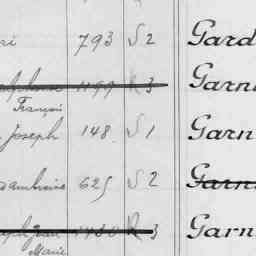 ri 793 S 2 Gard
1199 R 3 Garn
François
Joseph 148 S 1 Garn
625 S 2 Garn
R 3 Garn
Marie